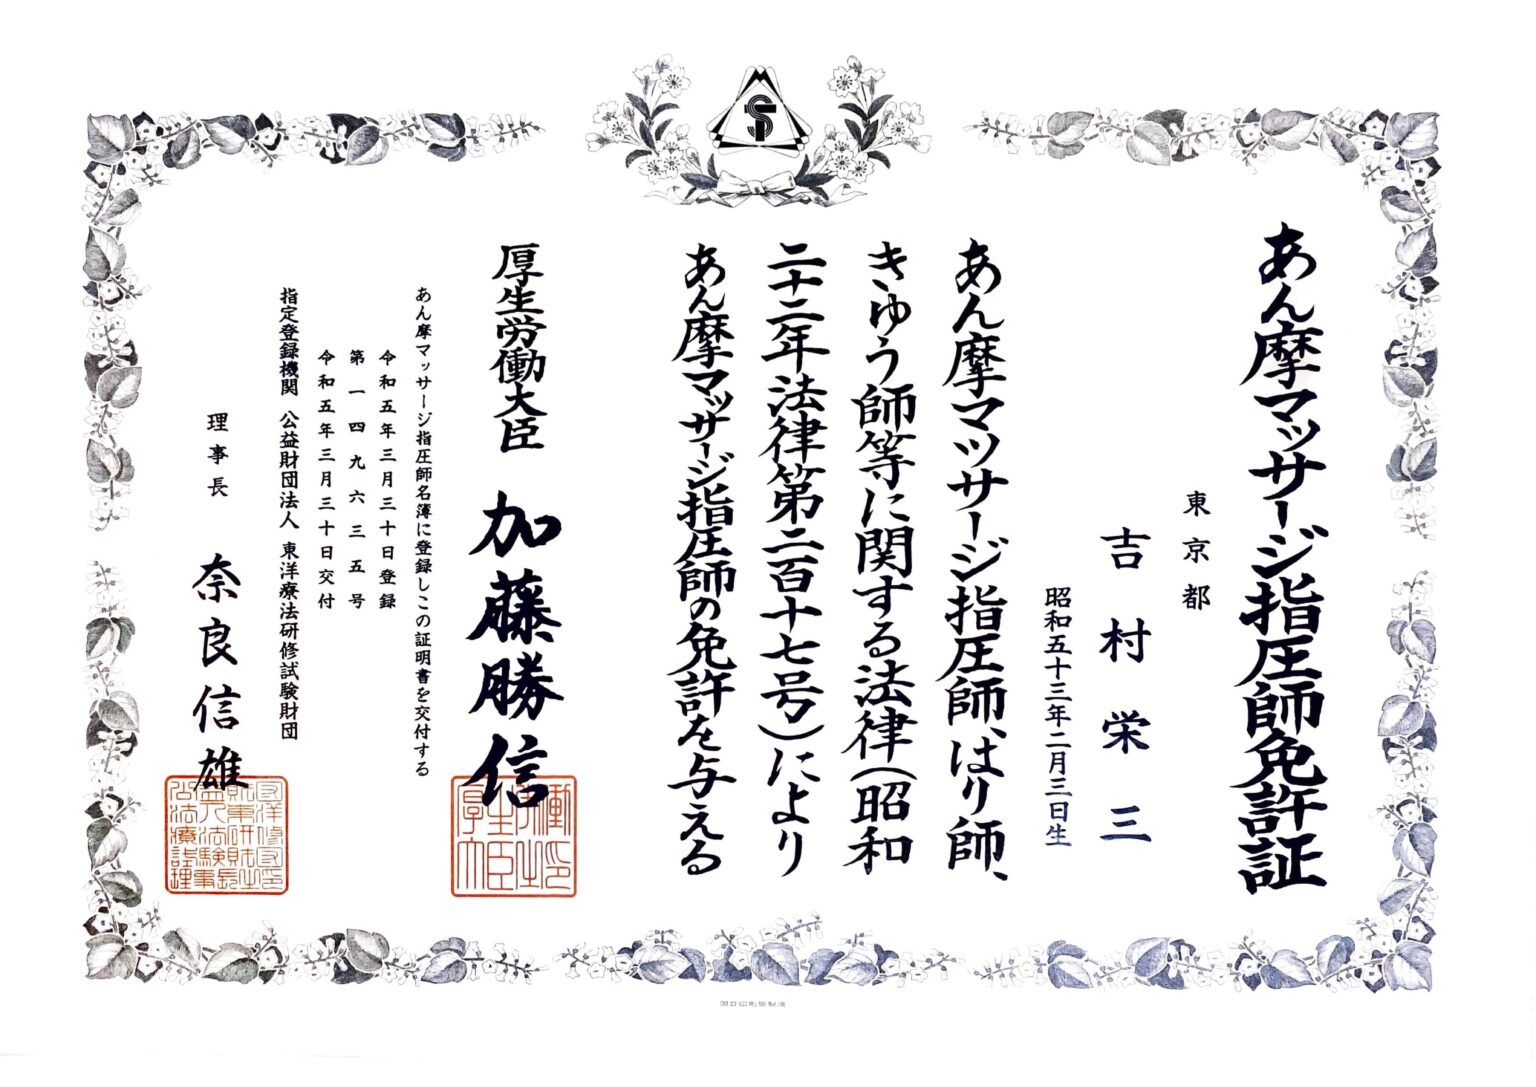 あん摩マッサージ指圧師免許証
東京都
吉村栄三
昭和五十三年二月三日生
あん摩マッサージ指圧師、はり師、
きゆう師等に関する法律(昭和
二十二年法律第二百十七号)により
あん摩マッサージ指圧師の免許を与える
厚生労働大臣 加藤勝信
あん摩マッサージ指圧師名簿に登録しこの証明書を交付する
令和五年三月三十日登録
第一四九六三五号
令和五年三月三十日交付
指定登録機関 公益財団法人 東洋療法研修試験財団
理事長 奈良信雄